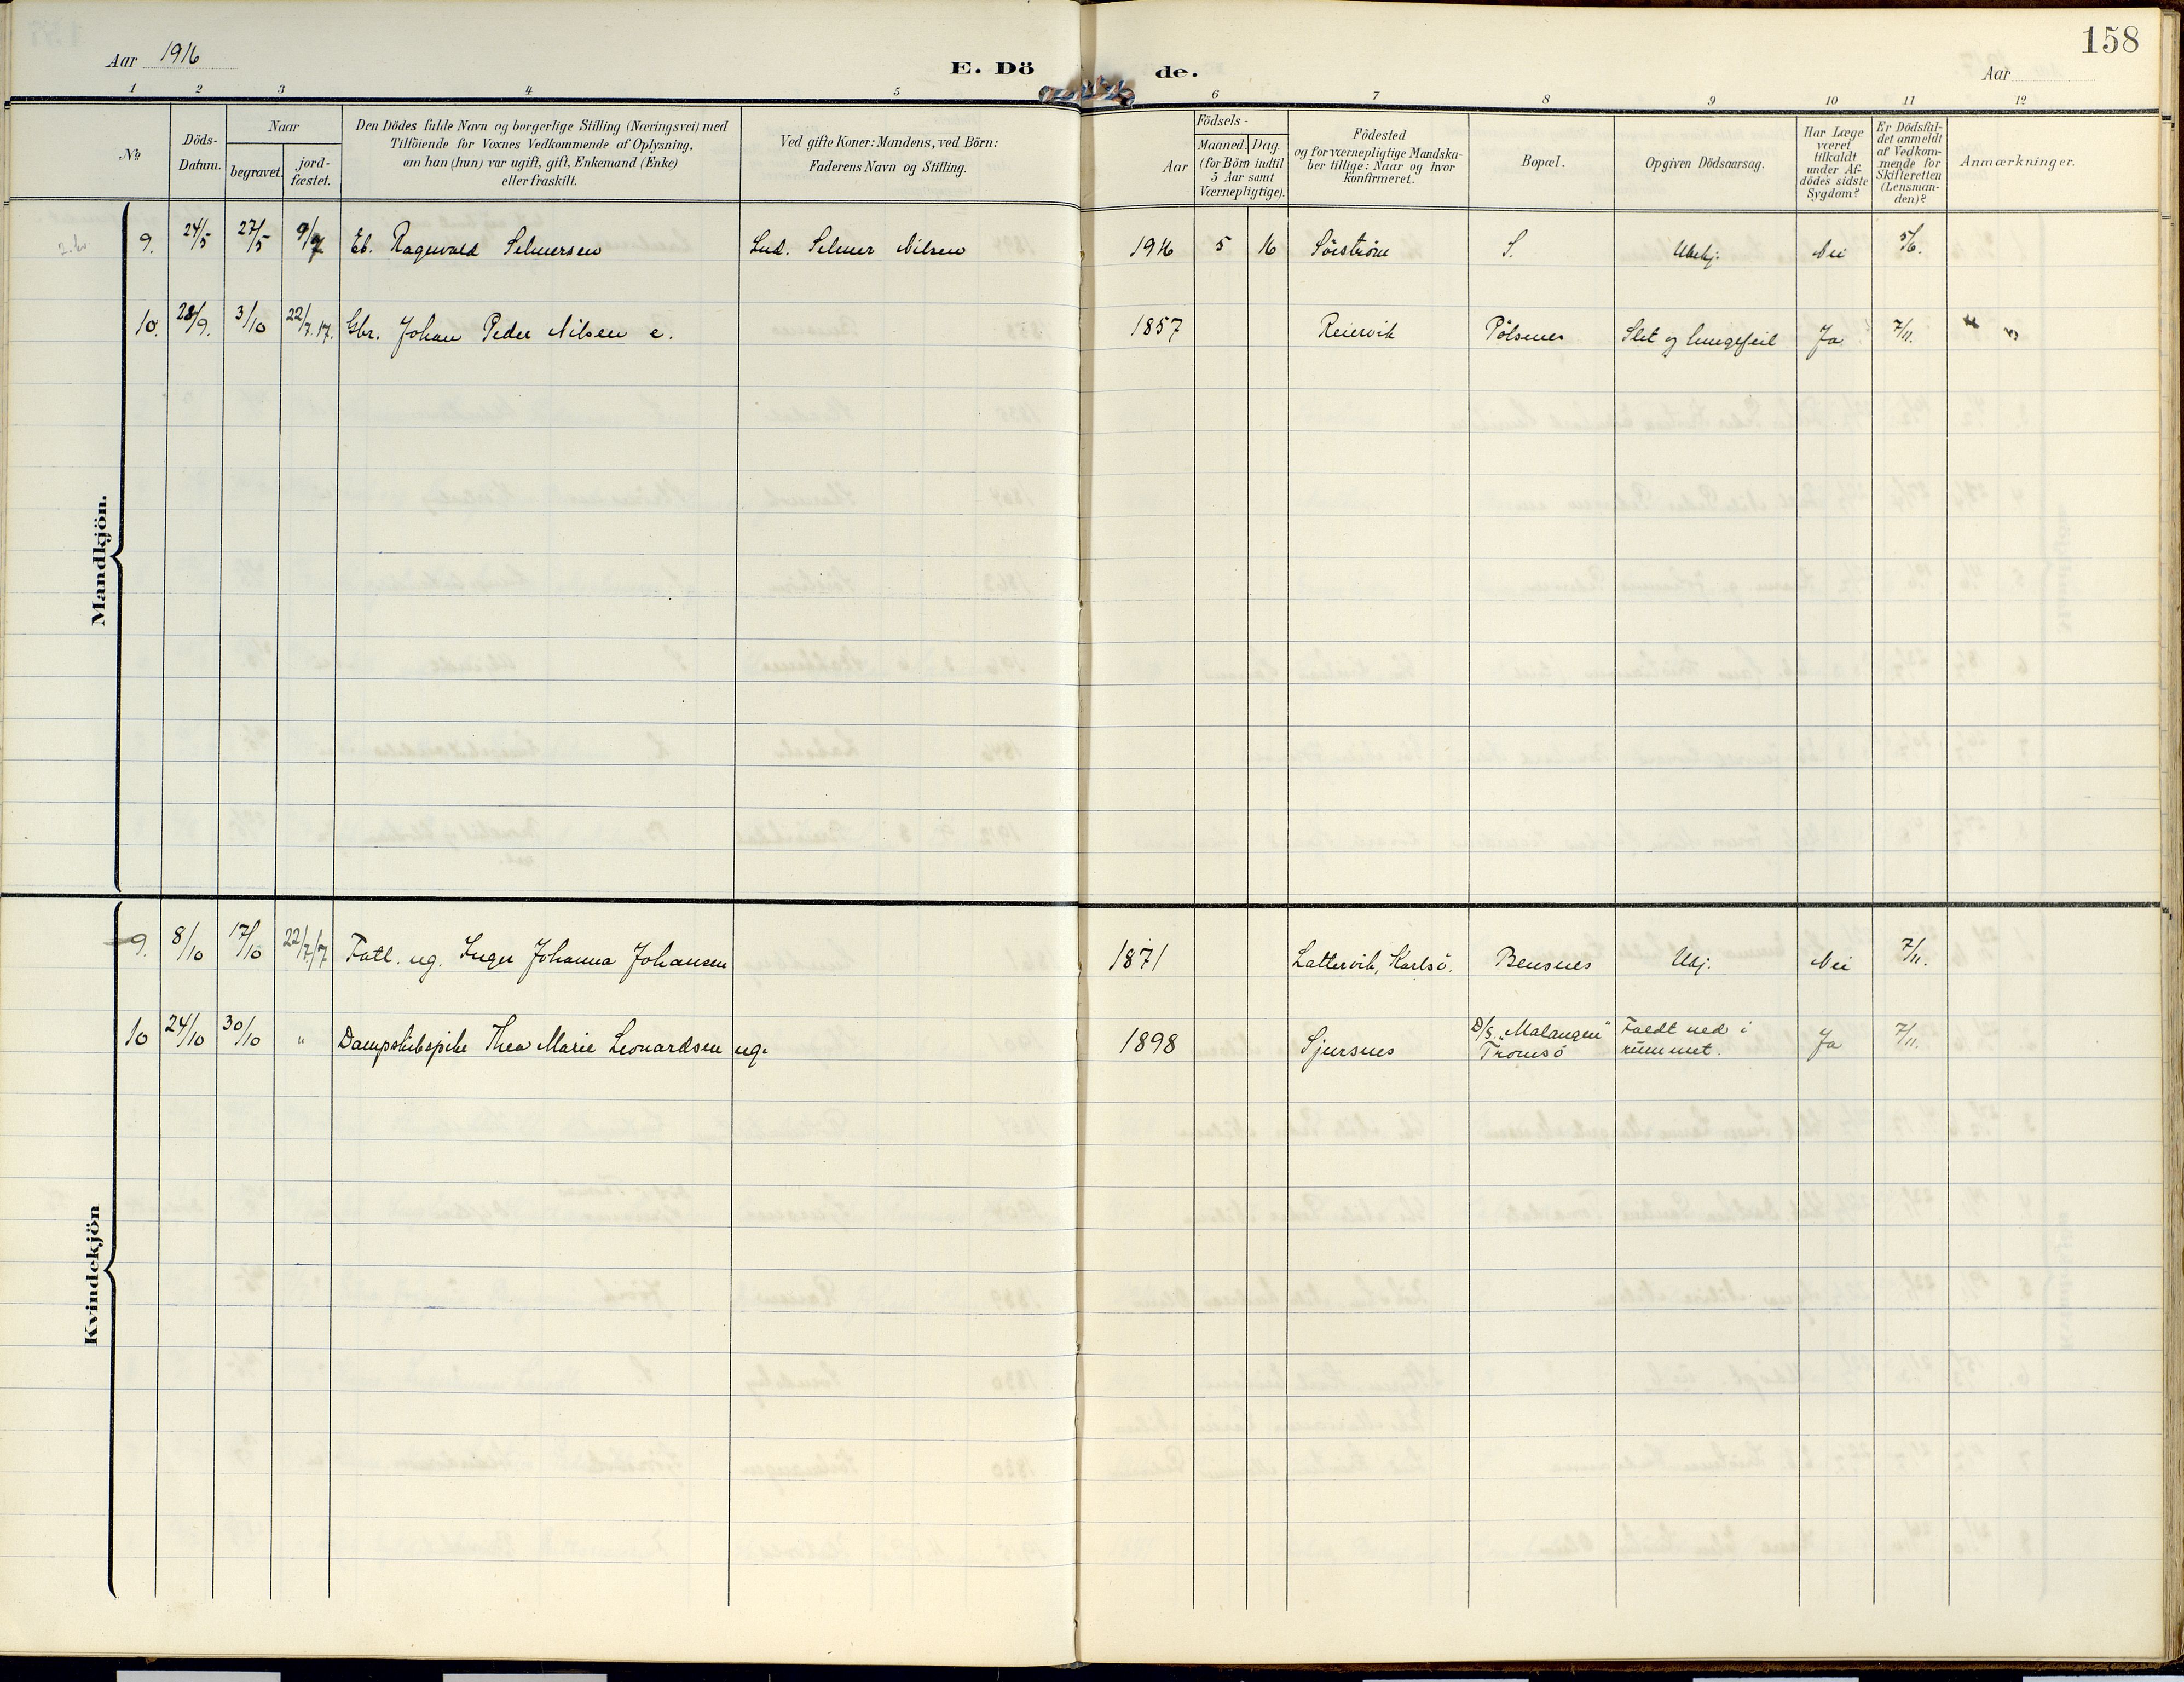 158
Aar 1916
E. Dö de.
Aar
1 2 3 4 5 6 7 8 9 10 11 12
No
Döds-
Datum.
Naar
begravet.
jord-
fæstet.
Den Dödes fulde Navn og borgerlige Stilling (Næringsvei) med
Tilföiende for Voxnes Vedkommende af Oplysning,
om han (hun) var ugift, gift, Enkemand (Enke)
eller fraskilt.
Ved gifte Koner: Mandens, ved Börn:
Faderens Navn og Stilling.
Födsels-
Aar
Maaned. Dag.
(for Börn indtil
5 Aar samt
Værnepligtige).
Födested
og for værnepligtige Mandska-
ber tillige: Naar og hvor
konfirmeret.
Bopæl.
Opgiven Dödsaarsag.
Har Læge
været
tilkaldt
under Af-
dödes sidste
Sygdom?
Er Dödsfal-
det anmeldt
af Vedkom-
mende for
Skifteretten
(Lensman-
den)?
Anmærkninger.
Mandkjön.
9. 24/5 27/5 9/7 Eb. Ragnvald Selmersen Lud. Selmer Nilsen 1916 5 16 Sörström S. Ubekj. Nei 5/6.
10. 28/9. 3/10 22/7.17. Gbr. Johan Peder Nilsen e. 1857 Reiervik Pölsnes Slet og lungefeil Ja 7/11.
Kvindekjön
9. 8/10 17/10 22/7/17 Fatl. ug. Inger Johanna Johansen 1871 Lattervik, Karlsö. Bensnes Ukj. Nei 7/11.
10 24/10 30/10 " Dampskibspike Thea Marie Leonardsen ug. 1898 Sjursnes D/S. "Malangen" Faldt ned i Ja 7/11.
Tromsö rummet.